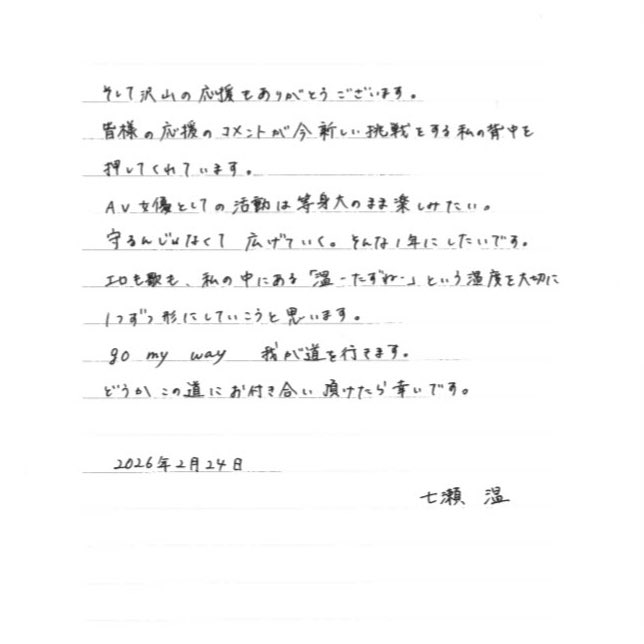 そして沢山の応援もありがとうございます。
皆様の応援のコメントが今新しい挑戦をする私の背中を
押してくれています。
AV女優としての活動は等身大のまま楽しみたい。
守るんじゃなくて 広げていく。そんな1年にしたいです。
エロも歌も、私の中にある「温-たずね-」という温度を大切に
1つずつ形にしていこうと思います。
go my way 我が道を行きます。
どうかこの道にお付き合い頂けたら幸いです。
2026年2月24日
七瀬 温